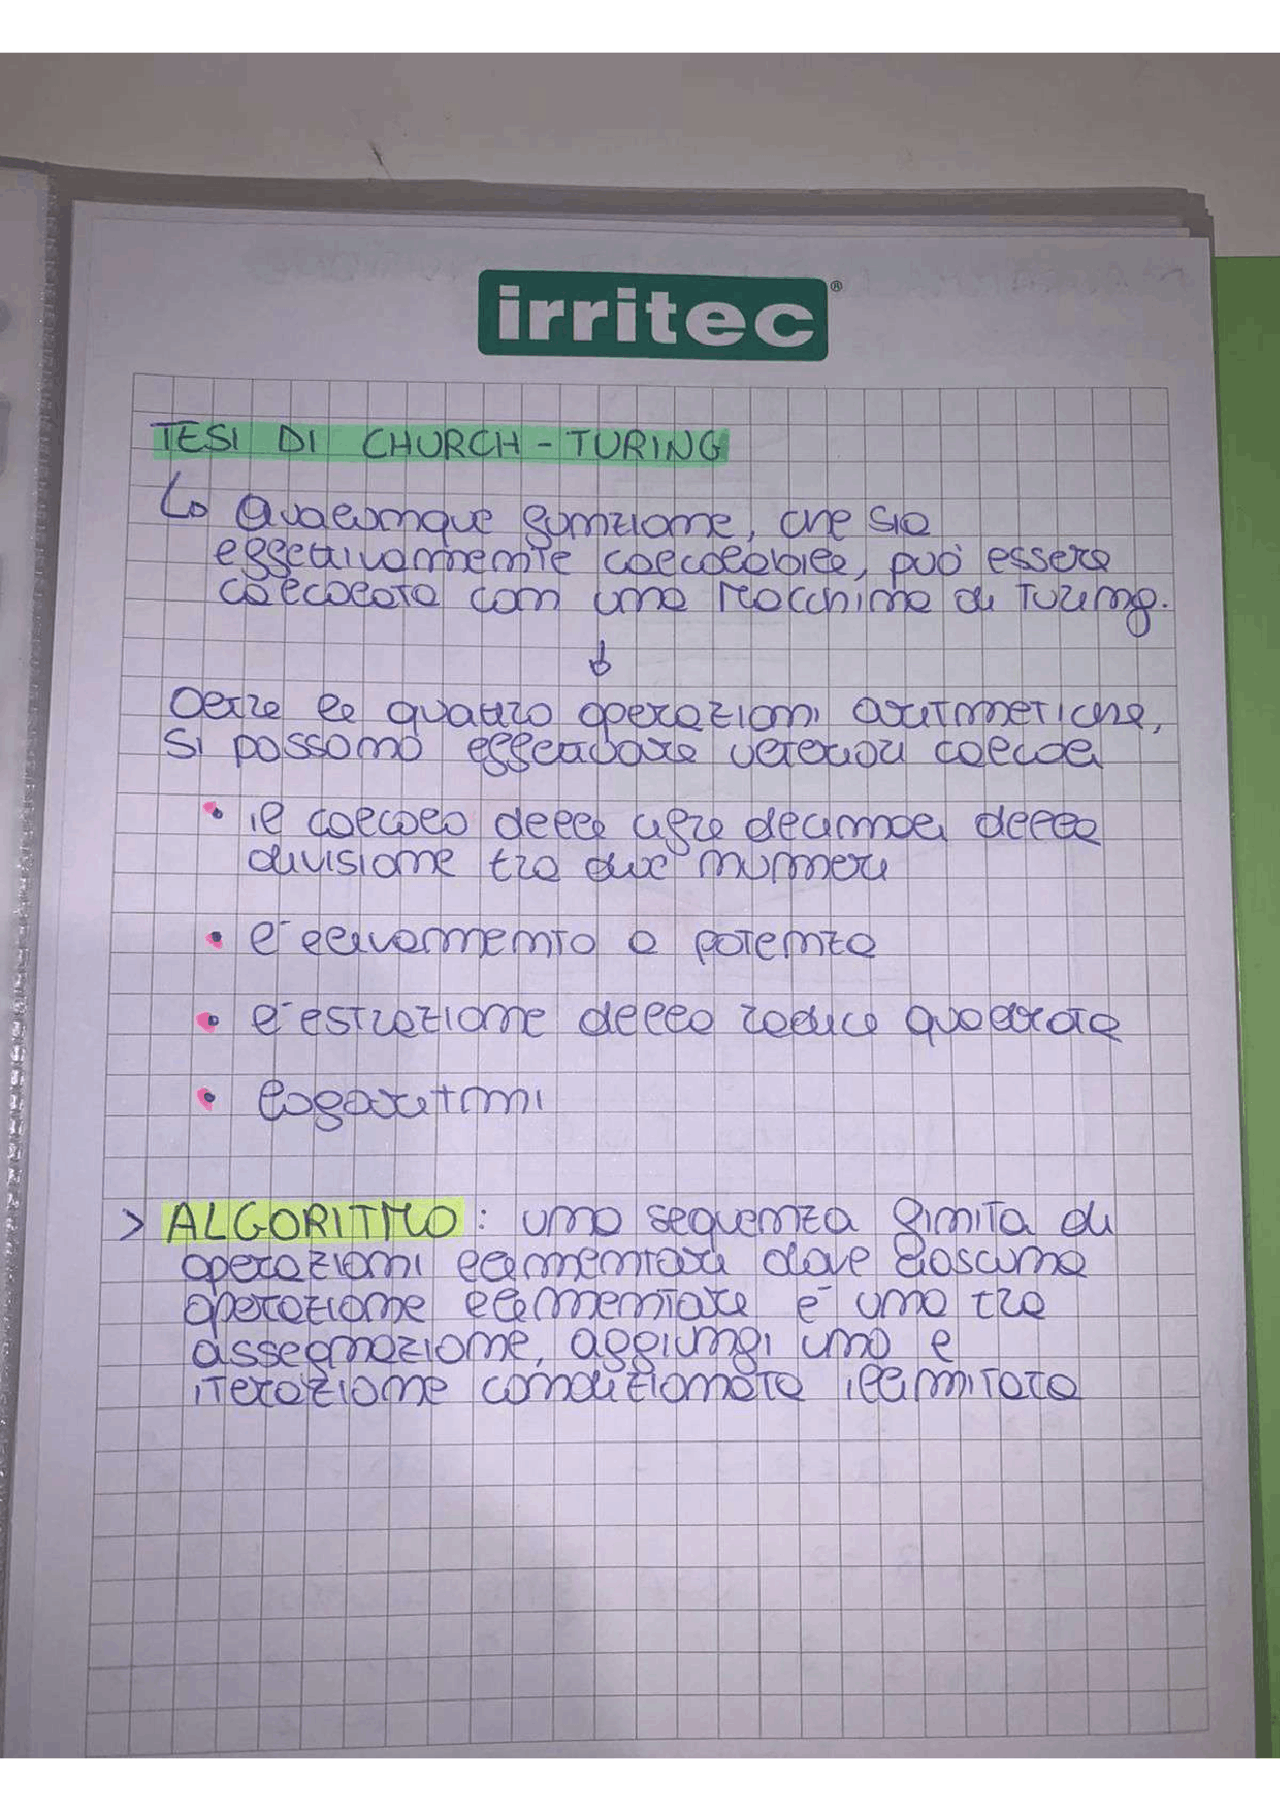 irritec®
TESI DI CHURCH - TURING
↳ Qualunque funzione, che sia
effettivamente calcolabile, può essere
calcolata con una Macchina di Turing.
↓
Oltre le quattro operazioni aritmetiche,
si possono effettuare ulteriori calcoli
• il calcolo delle cifre decimali della
divisione tra due numeri
• l'elevamento a potenza
• l'estrazione della radice quadrata
• logaritmi
> ALGORITMO: una sequenza finita di
operazioni elementari dove ciascuna
operazione elementare è una tra
assegnazione, aggiungi uno e
iterazione condizionata illimitata